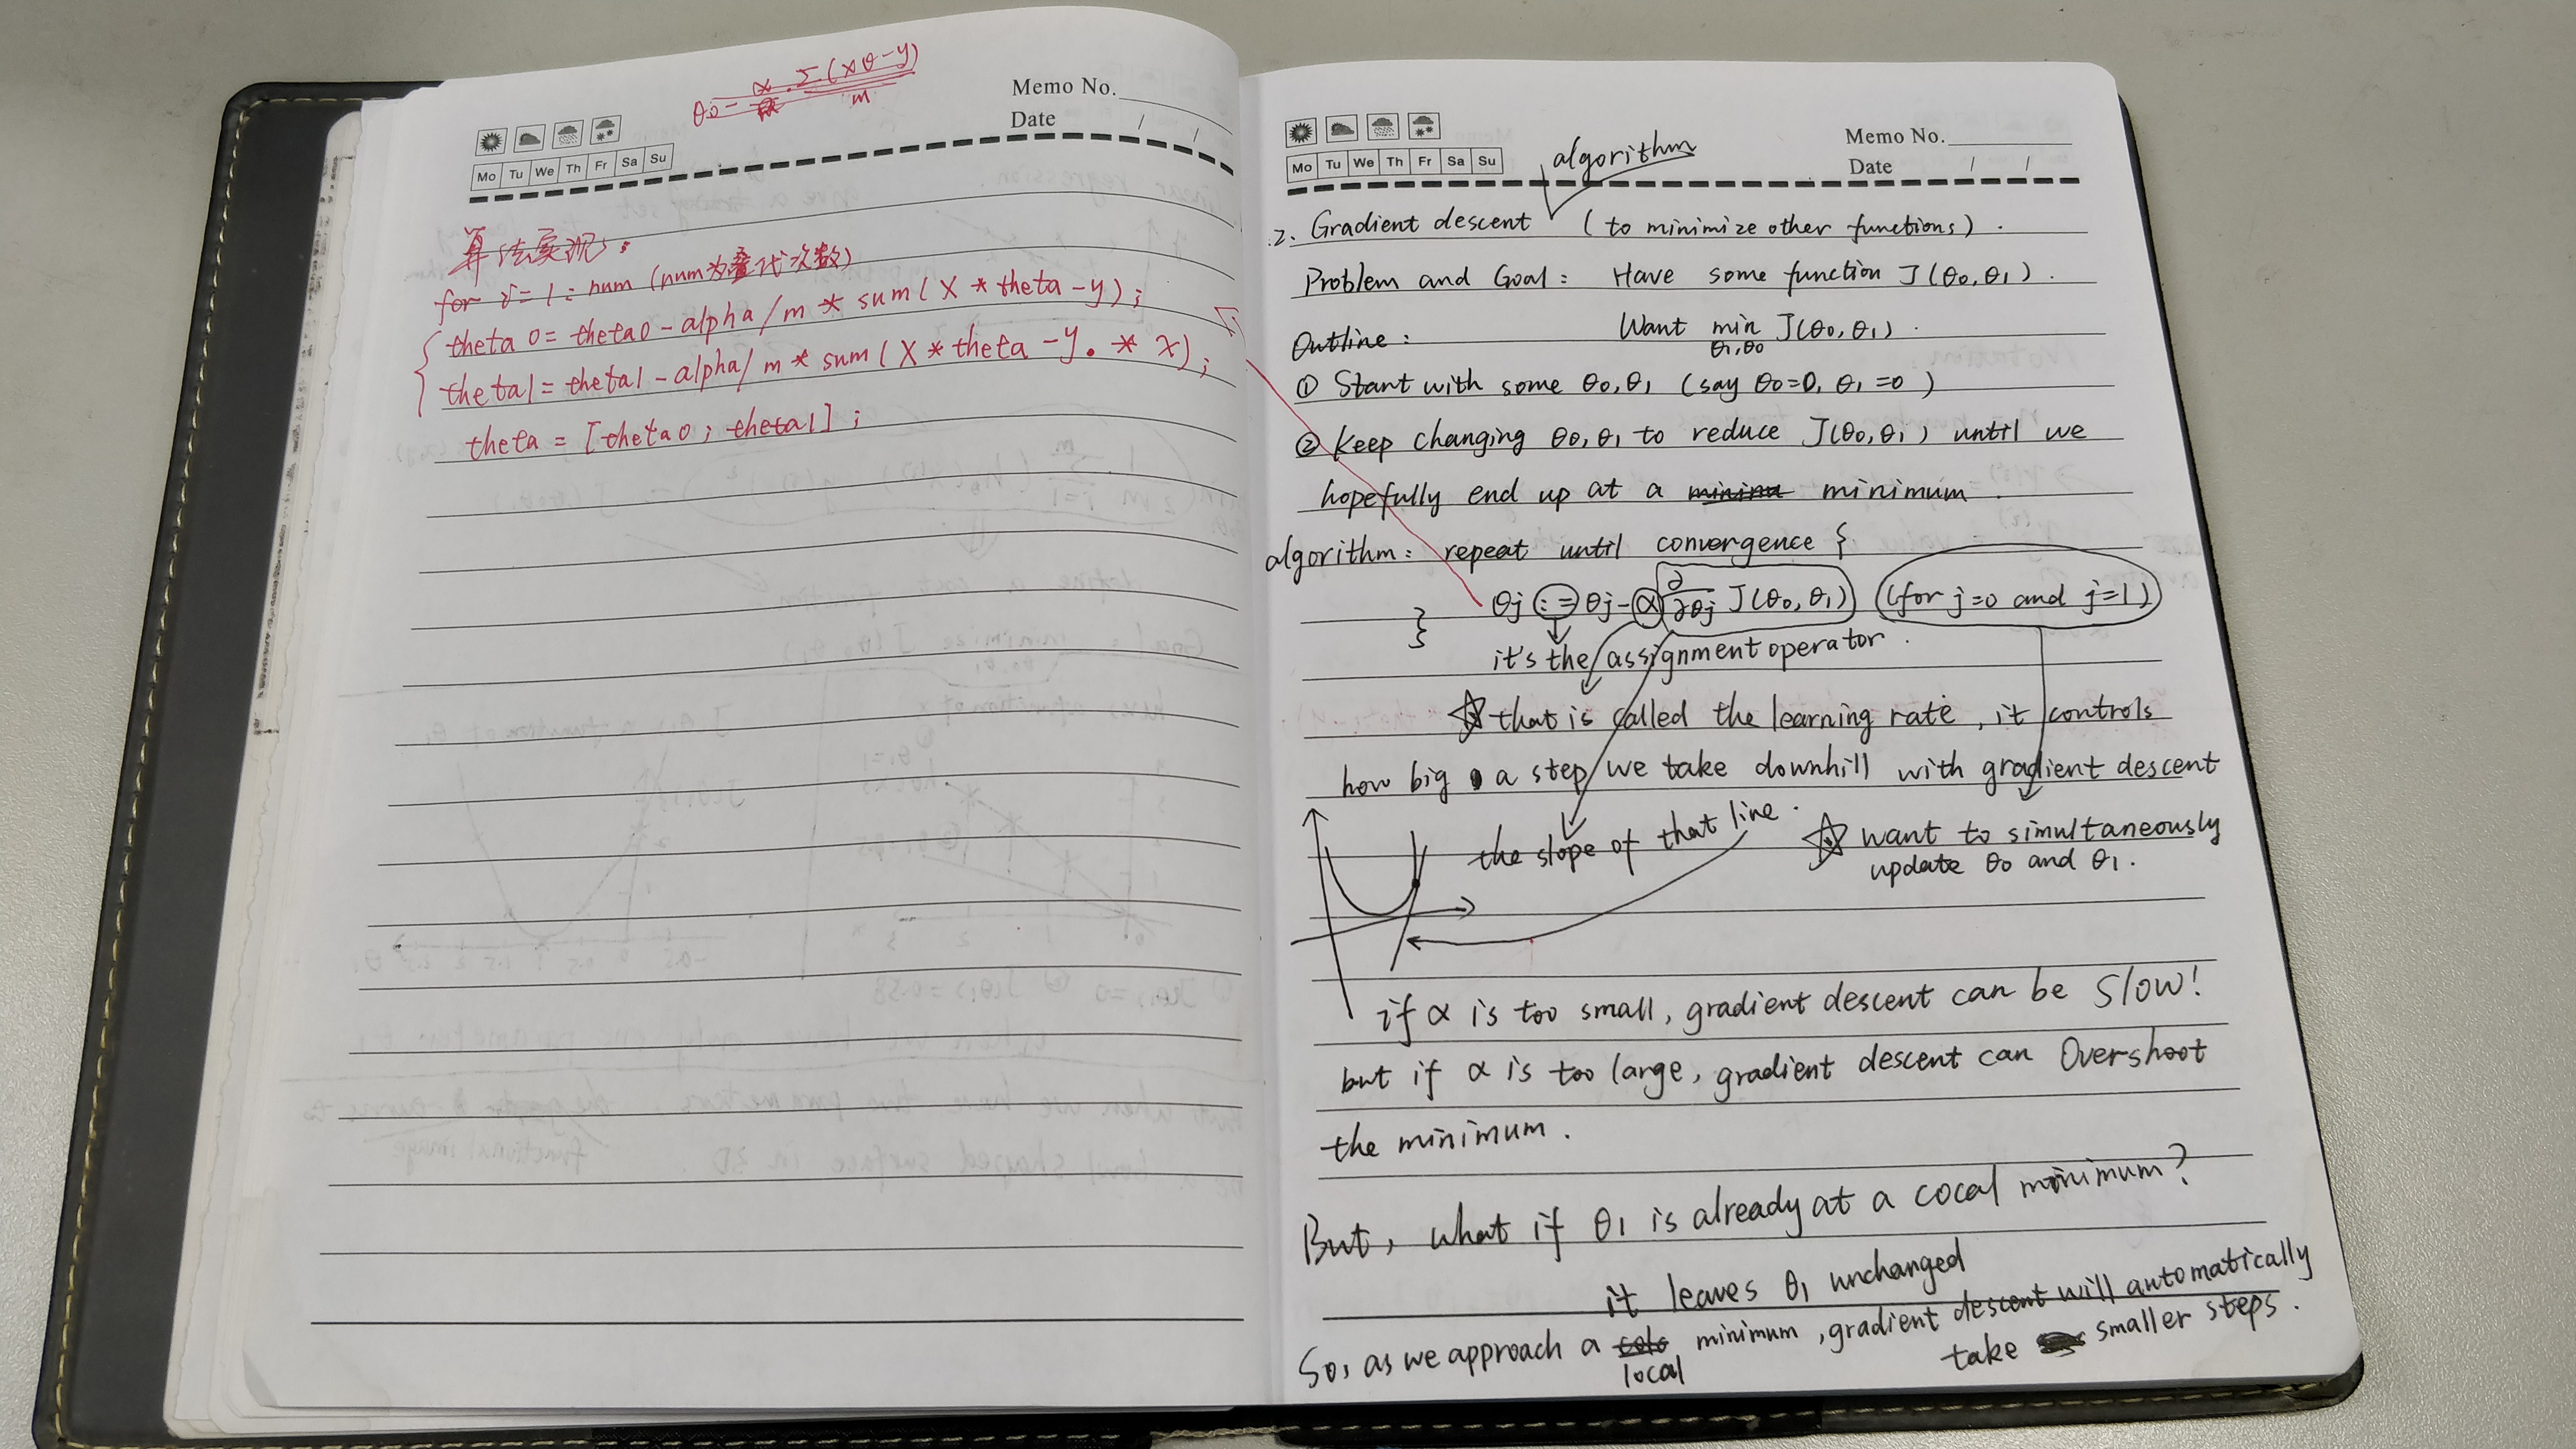 θ0 - α · Σ(xθ-y) / m
Memo No.
Date / /
Mo Tu We Th Fr Sa Su
算法实现:
for i=1:num (num为迭代次数)
{ theta0 = theta0 - alpha/m * sum(X * theta - y);
theta1 = theta1 - alpha/m * sum(X * theta - y. * x);
theta = [theta0; theta1];
Memo No.
Date / /
Mo Tu We Th Fr Sa Su
algorithm
2. Gradient descent (to minimize other functions).
Problem and Goal: Have some function J(θ0,θ1).
Outline: Want min J(θ0,θ1).
θ1,θ0
① Start with some θ0,θ1 (say θ0=0, θ1=0)
② Keep changing θ0,θ1 to reduce J(θ0,θ1) until we
hopefully end up at a minimum.
algorithm: repeat until convergence {
θj := θj - α ∂/∂θj J(θ0,θ1) (for j=0 and j=1)
}
it's the assignment operator.
☆ that is called the learning rate, it controls
how big a step we take downhill with gradient descent
the slope of that line.
☆ want to simultaneously
update θ0 and θ1.
if α is too small, gradient descent can be slow!
but if α is too large, gradient descent can Overshoot
the minimum.
But, what if θ1 is already at a cocal minimum?
it leaves θ1 unchanged
So, as we approach a local minimum, gradient descent will automatically
take smaller steps.